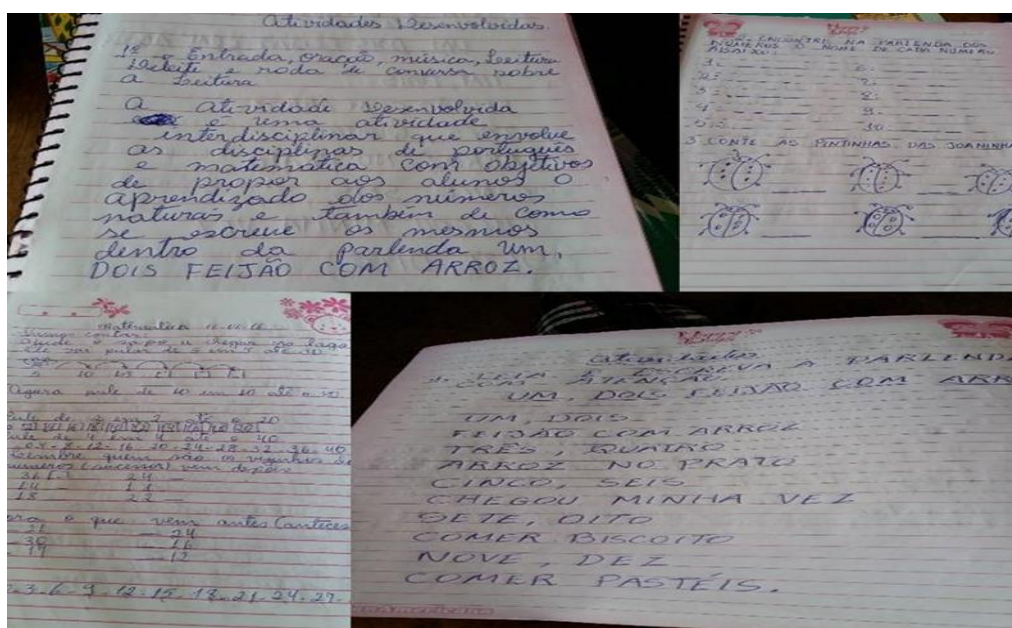 Atividades Desenvolvidas.
1º - Entrada, oração, música, Leitura
Deleite e roda de conversa sobre
a Leitura
A atividade Desenvolvida
é uma atividade
interdisciplinar que envolve
as disciplinas de português
e matemática com objetivos
de propor aos alunos o
aprendizado dos números
naturas e também de como
se escreve os mesmos
dentro da parlenda um,
DOIS FEIJÃO COM ARROZ.
ENCONTRE NA PARLENDA DOS
NÚMEROS O NOME DE CADA NÚMERO
ABAIXO:
1=
2=
3=
4=
5=
6=
7=
8=
9=
10=
3 CONTE AS PINTINHAS DAS JOANINHA
Matemática
contar
Ajude o sapo a chegar na lagoa
Ele vai pular de 5 em 5 até 30
5 10 15
Agora pule de 10 em 10 até o
Pule de 2 em 2 até o 20
Pule de 4 em 4 até o 40
8-12-16-20-24-28-32-36-40
Lembre quem são os vizinhos
números (sucessor) vem depois
36 24
14 11
18 22
o que vem antes (anteces
21 24
30 16
19 12
3-6-9-12-15-18-21-24-27
Atividades
LEIA E ESCREVA A PARLENDA
COM ATENÇÃO
UM, DOIS FEIJÃO COM ARR
UM, DOIS
FEIJÃO COM ARROZ
TRÊS, QUATRO
ARROZ NO PRATO
CINCO, SEIS
CHEGOU MINHA VEZ
SETE, OITO
COMER BISCOITO
NOVE, DEZ
COMER PASTÉIS.